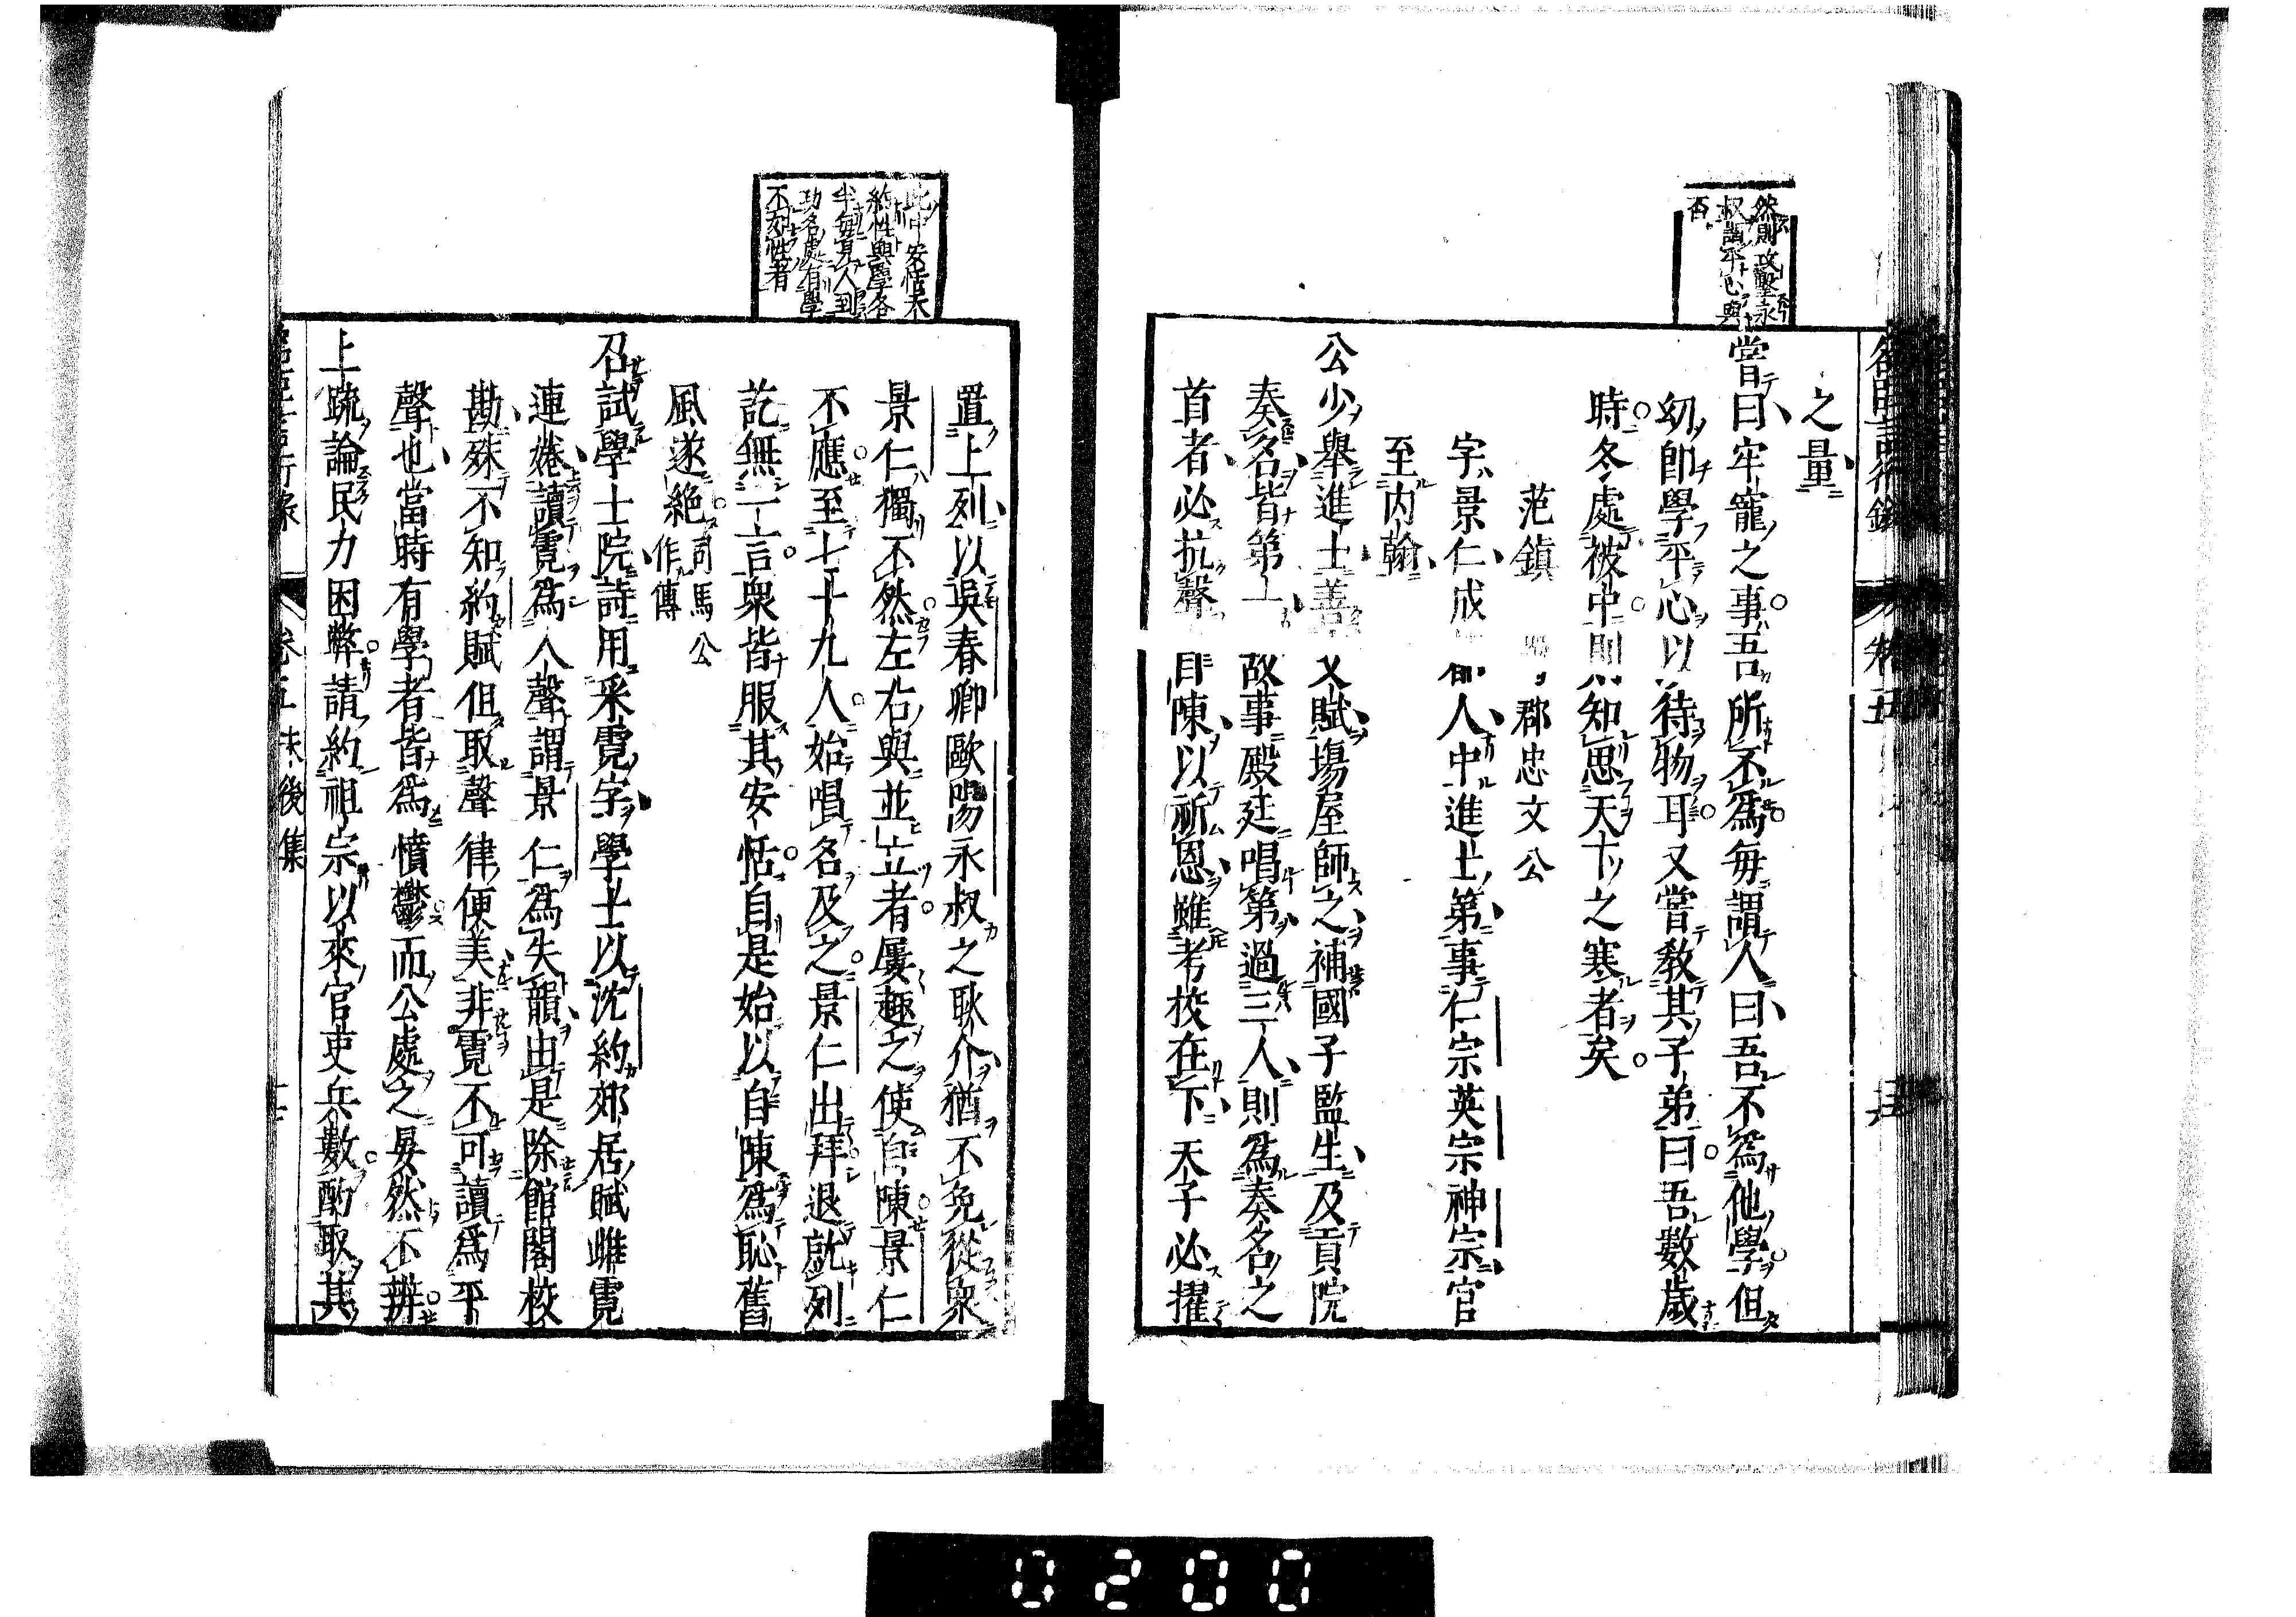 然則攻擊永
叔謂平心與
否
之量
嘗曰牢寵之事吾所不爲每謂人曰吾不爲他學但
幼卽學平心以待物耳又嘗教其子弟曰吾數歲
時冬處被中則知思天下之寒者矣
范鎮 郡忠文公
字景仁成 人中進士第事仁宗英宗神宗官
至内翰
公少舉進士善文賦塲屋師之補國子監生及貢院
奏名皆第一故事殿廷唱第過三人則爲奏名之
首者必抗聲自陳以祈恩雖考校在下天子必擢
此中安恬不
約性與學各
半每見人到
功名處有學
不刻性者
置上列以吳春卿歐陽永叔之耿介猶不免從衆
景仁獨不然左右與並立者屢趣之使自陳景仁
不應至七十九人始唱名及之景仁出拜退就列
訖無一言衆皆服其安恬自是始以自陳爲恥舊
風遂絕司馬公
作傳
召試學士院詩用采霓字學士以沈約郊居賦雌霓
連蜷讀霓爲入聲謂景仁爲失韻由是除館閣校
勘殊不知約賦但取聲律便美非霓不可讀爲平
聲也當時有學者皆爲憤鬱而公處之晏然不辨
上疏論民力困弊請約祖宗以來官吏兵數酌取其
卷五 後集